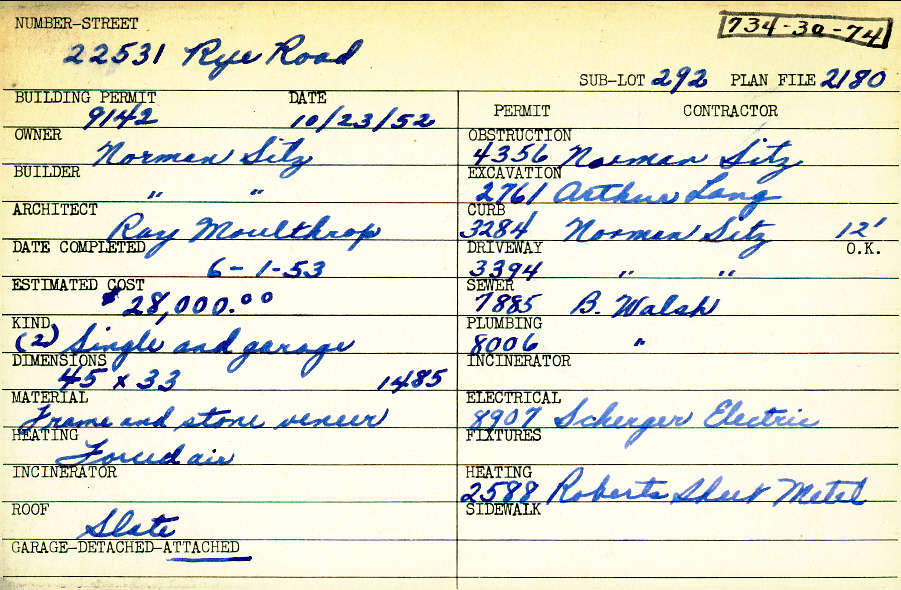 NUMBER-STREET
734-30-74
22531 Rye Road
SUB-LOT 292 PLAN FILE 2180
BUILDING PERMIT DATE
9142 10/23/52
OWNER
Norman Sitz
BUILDER
" "
ARCHITECT
Ray Moulthrop
DATE COMPLETED
6-1-53
ESTIMATED COST
$28,000.00
KIND
(2) Single and garage
DIMENSIONS
45 x 33 1485
MATERIAL
Frame and stone veneer
HEATING
Forced air
INCINERATOR
ROOF
Slate
GARAGE-DETACHED-ATTACHED
PERMIT CONTRACTOR
OBSTRUCTION
4356 Norman Sitz
EXCAVATION
2761 Arthur Lang
CURB
3284 Norman Sitz 12'
DRIVEWAY O.K.
3394 " "
SEWER
7885 B. Walsh
PLUMBING
8006 "
INCINERATOR
ELECTRICAL
8907 Scherger Electric
FIXTURES
HEATING
2588 Roberts Sheet Metal
SIDEWALK